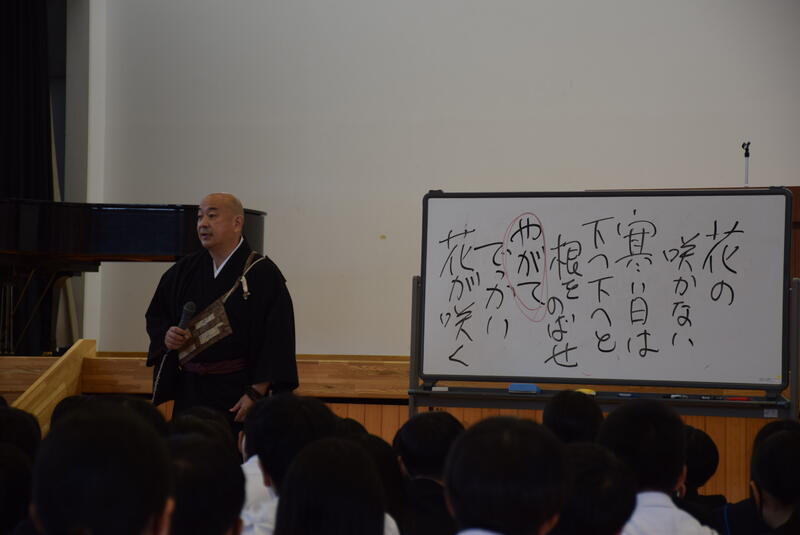 花の
咲かない
寒い日は
下へ下へと
根をのばせ
やがて
でっかい
花が咲く